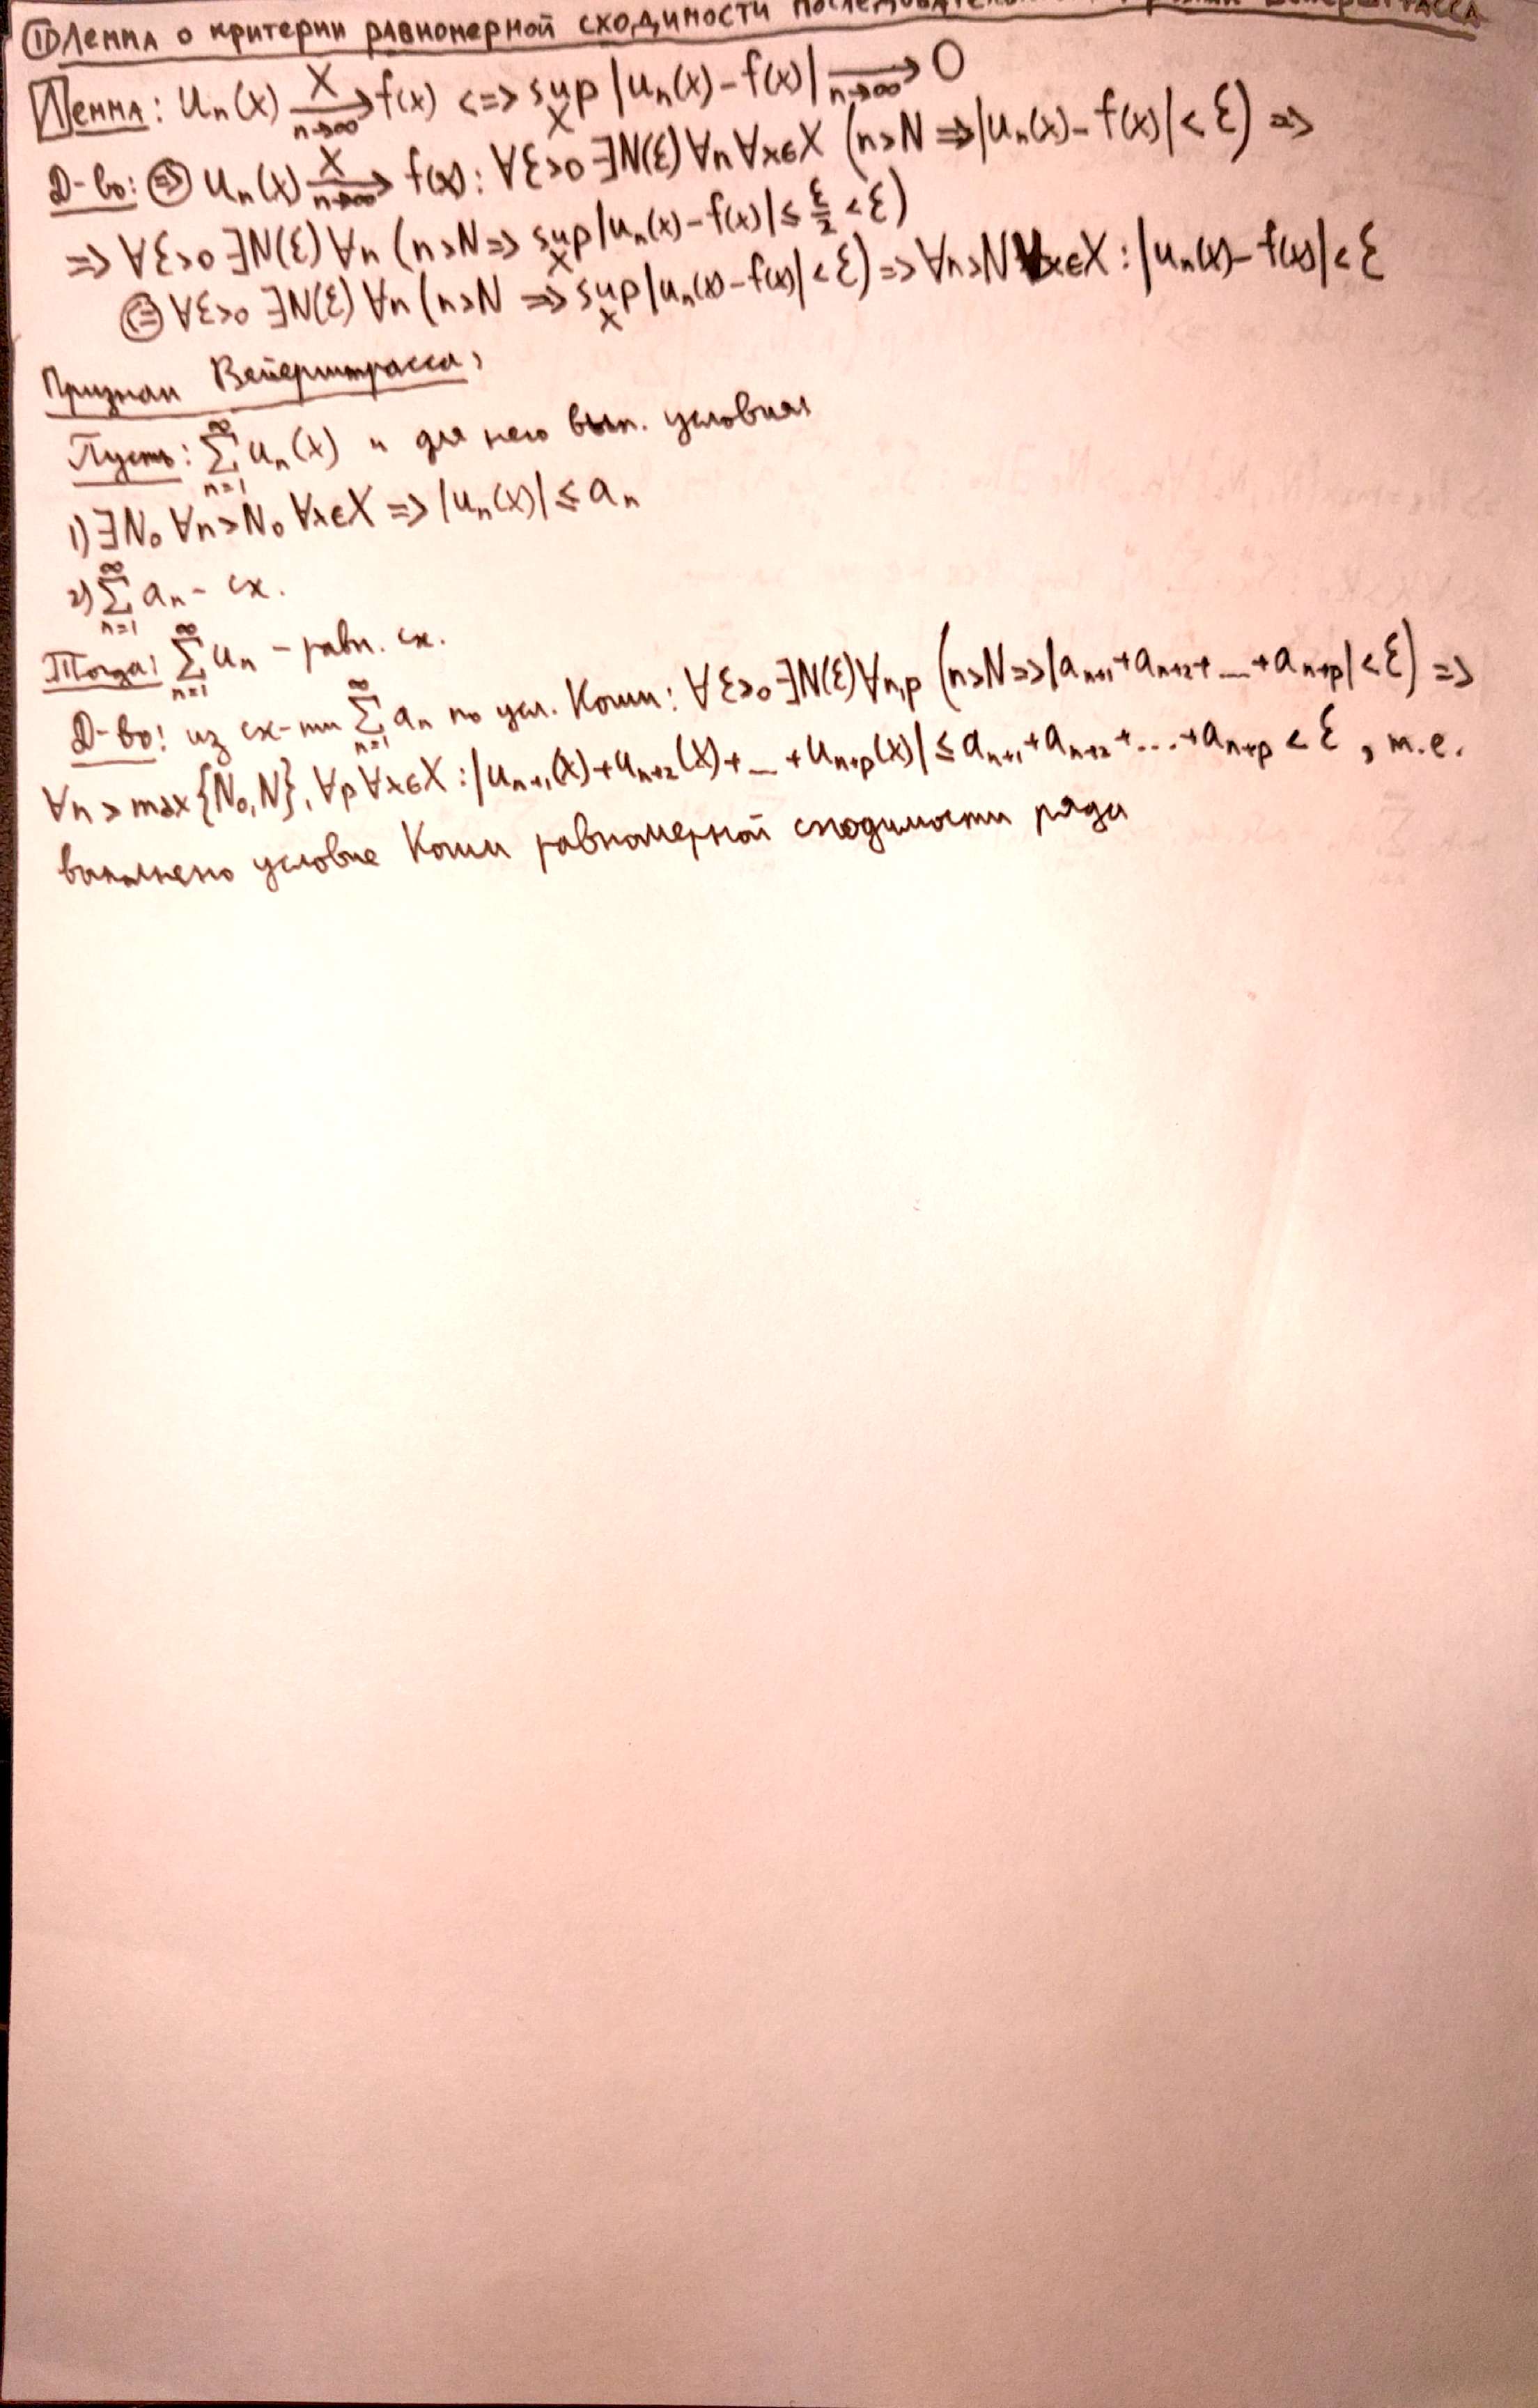 ① Лемма о критерии равномерной сходимости
Лемма: uₙ(x) X→ n→∞ f(x) <=> sup X |uₙ(x) - f(x)| → n→∞ 0
Д-во: (=>) uₙ(x) X→ n→∞ f(x): ∀ε>0 ∃N(ε) ∀n ∀x∈X (n>N => |uₙ(x) - f(x)| < ε) =>
=> ∀ε>0 ∃N(ε) ∀n (n>N => sup X |uₙ(x) - f(x)| ≤ ε/2 < ε)
(<=) ∀ε>0 ∃N(ε) ∀n (n>N => sup X |uₙ(x) - f(x)| < ε) => ∀n>N ∀x∈X : |uₙ(x) - f(x)| < ε
Признак Вейерштрасса:
Пусть: ∑ n=1 ∞ uₙ(x) и для него вып. условия
1) ∃N₀ ∀n>N₀ ∀x∈X => |uₙ(x)| ≤ aₙ
2) ∑ n=1 ∞ aₙ - сх.
Тогда: ∑ n=1 ∞ uₙ - равн. сх.
Д-во: из сх-ти ∑ n=1 ∞ aₙ по усл. Коши: ∀ε>0 ∃N(ε) ∀n,p (n>N => |aₙ₊₁ + aₙ₊₂ + ... + aₙ₊ₚ| < ε) =>
∀n > max{N₀, N}, ∀p ∀x∈X : |uₙ₊₁(x) + uₙ₊₂(x) + ... + uₙ₊ₚ(x)| ≤ aₙ₊₁ + aₙ₊₂ + ... + aₙ₊ₚ < ε, т.е.
выполнено условие Коши равномерной сходимости ряда